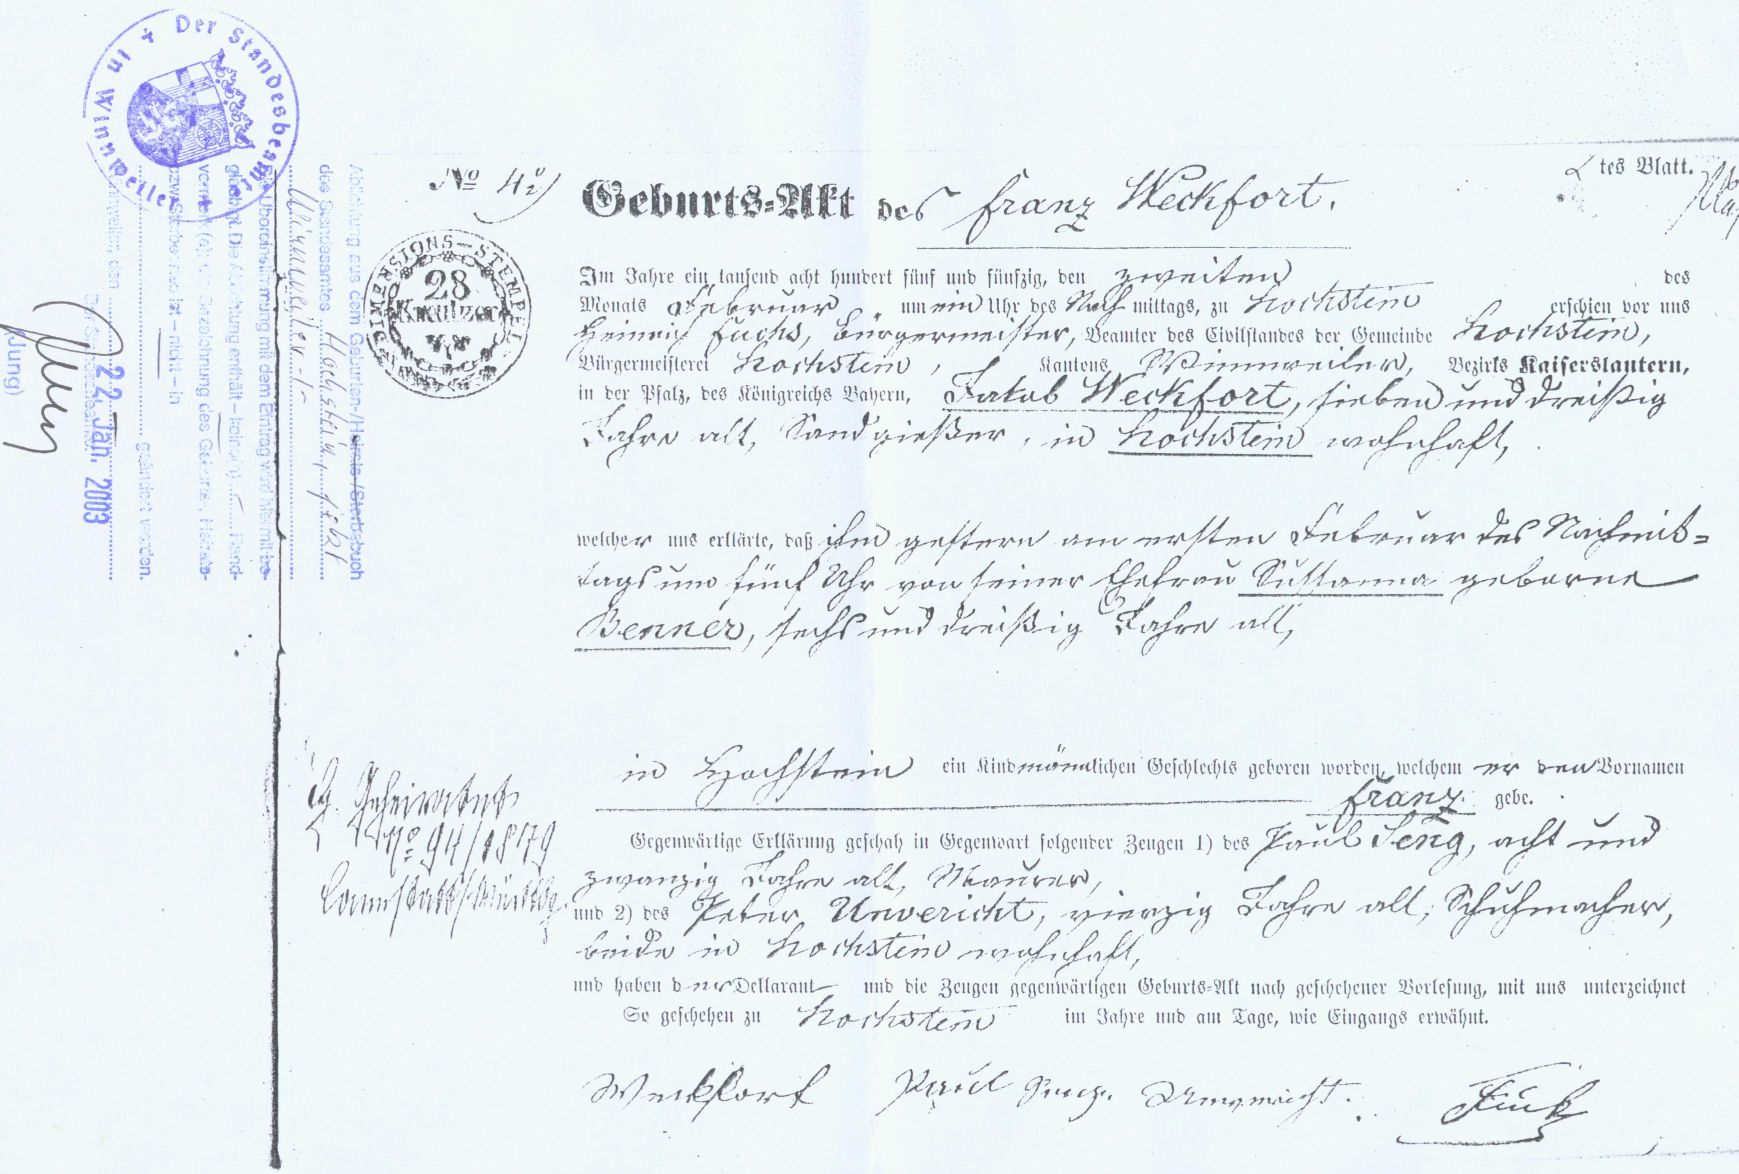 2tes Blatt.
No 4.
Geburts-Akt des Franz Weckfort.
DIMENSIONS-STEMPEL
28
Kreutzer
Im Jahre ein tausend acht hundert fünf und fünfzig, den zweiten des
Monats Februar um ein Uhr des Nachmittags, zu Hochstein erschien vor uns
Heinrich Fuchs, Bürgermeister, Beamter des Civilstandes der Gemeinde Hochstein,
Bürgermeisterei Hochstein, Kantons Winnweiler, Bezirks Kaiserslautern,
in der Pfalz, des Königreichs Bayern, Jakob Weckfort, sieben und dreißig
Jahre alt, Sandgießer, in Hochstein wohnhaft,
welcher uns erklärte, daß ihm gestern am ersten Februar des Nachmit=
tags um fünf Uhr von seiner Ehefrau Sussanna geborne
Benner, sechs und dreißig Jahre alt,
in Hochstein ein Kind männlichen Geschlechts geboren worden, welchem er den Vornamen
Franz gebe.
Gegenwärtige Erklärung geschah in Gegenwart folgender Zeugen 1) des Paul Seng, acht und
zwanzig Jahre alt, Maurer,
und 2) des Peter Unvericht, vierzig Jahre alt, Schuhmacher,
beide in Hochstein wohnhaft,
und haben der Deklarant und die Zeugen gegenwärtigen Geburts-Akt nach geschehener Vorlesung, mit uns unterzeichnet
So geschehen zu Hochstein im Jahre und am Tage, wie Eingangs erwähnt.
Weckfort Paul Seng. Unvericht. Fuchs
No 94/1879
Cannstatt/Württbg.
Der Standesbeamte in Winnweiler
Ablichtung aus dem Geburten-/Heirats-/Sterbebuch
des Standesamtes Hochstein, jetzt
Winnweiler
Die Übereinstimmung mit dem Eintrag wird hiermit be-
glaubigt. Die Ablichtung enthält – keine(n) Rand-
vermerk(e); die Bezeichnung des Geburts-, Heirats-
bzw. Sterbeortes ist – nicht – in
geändert worden.
Winnweiler, den 22. Jan. 2003
Der Standesbeamte
(Jung)